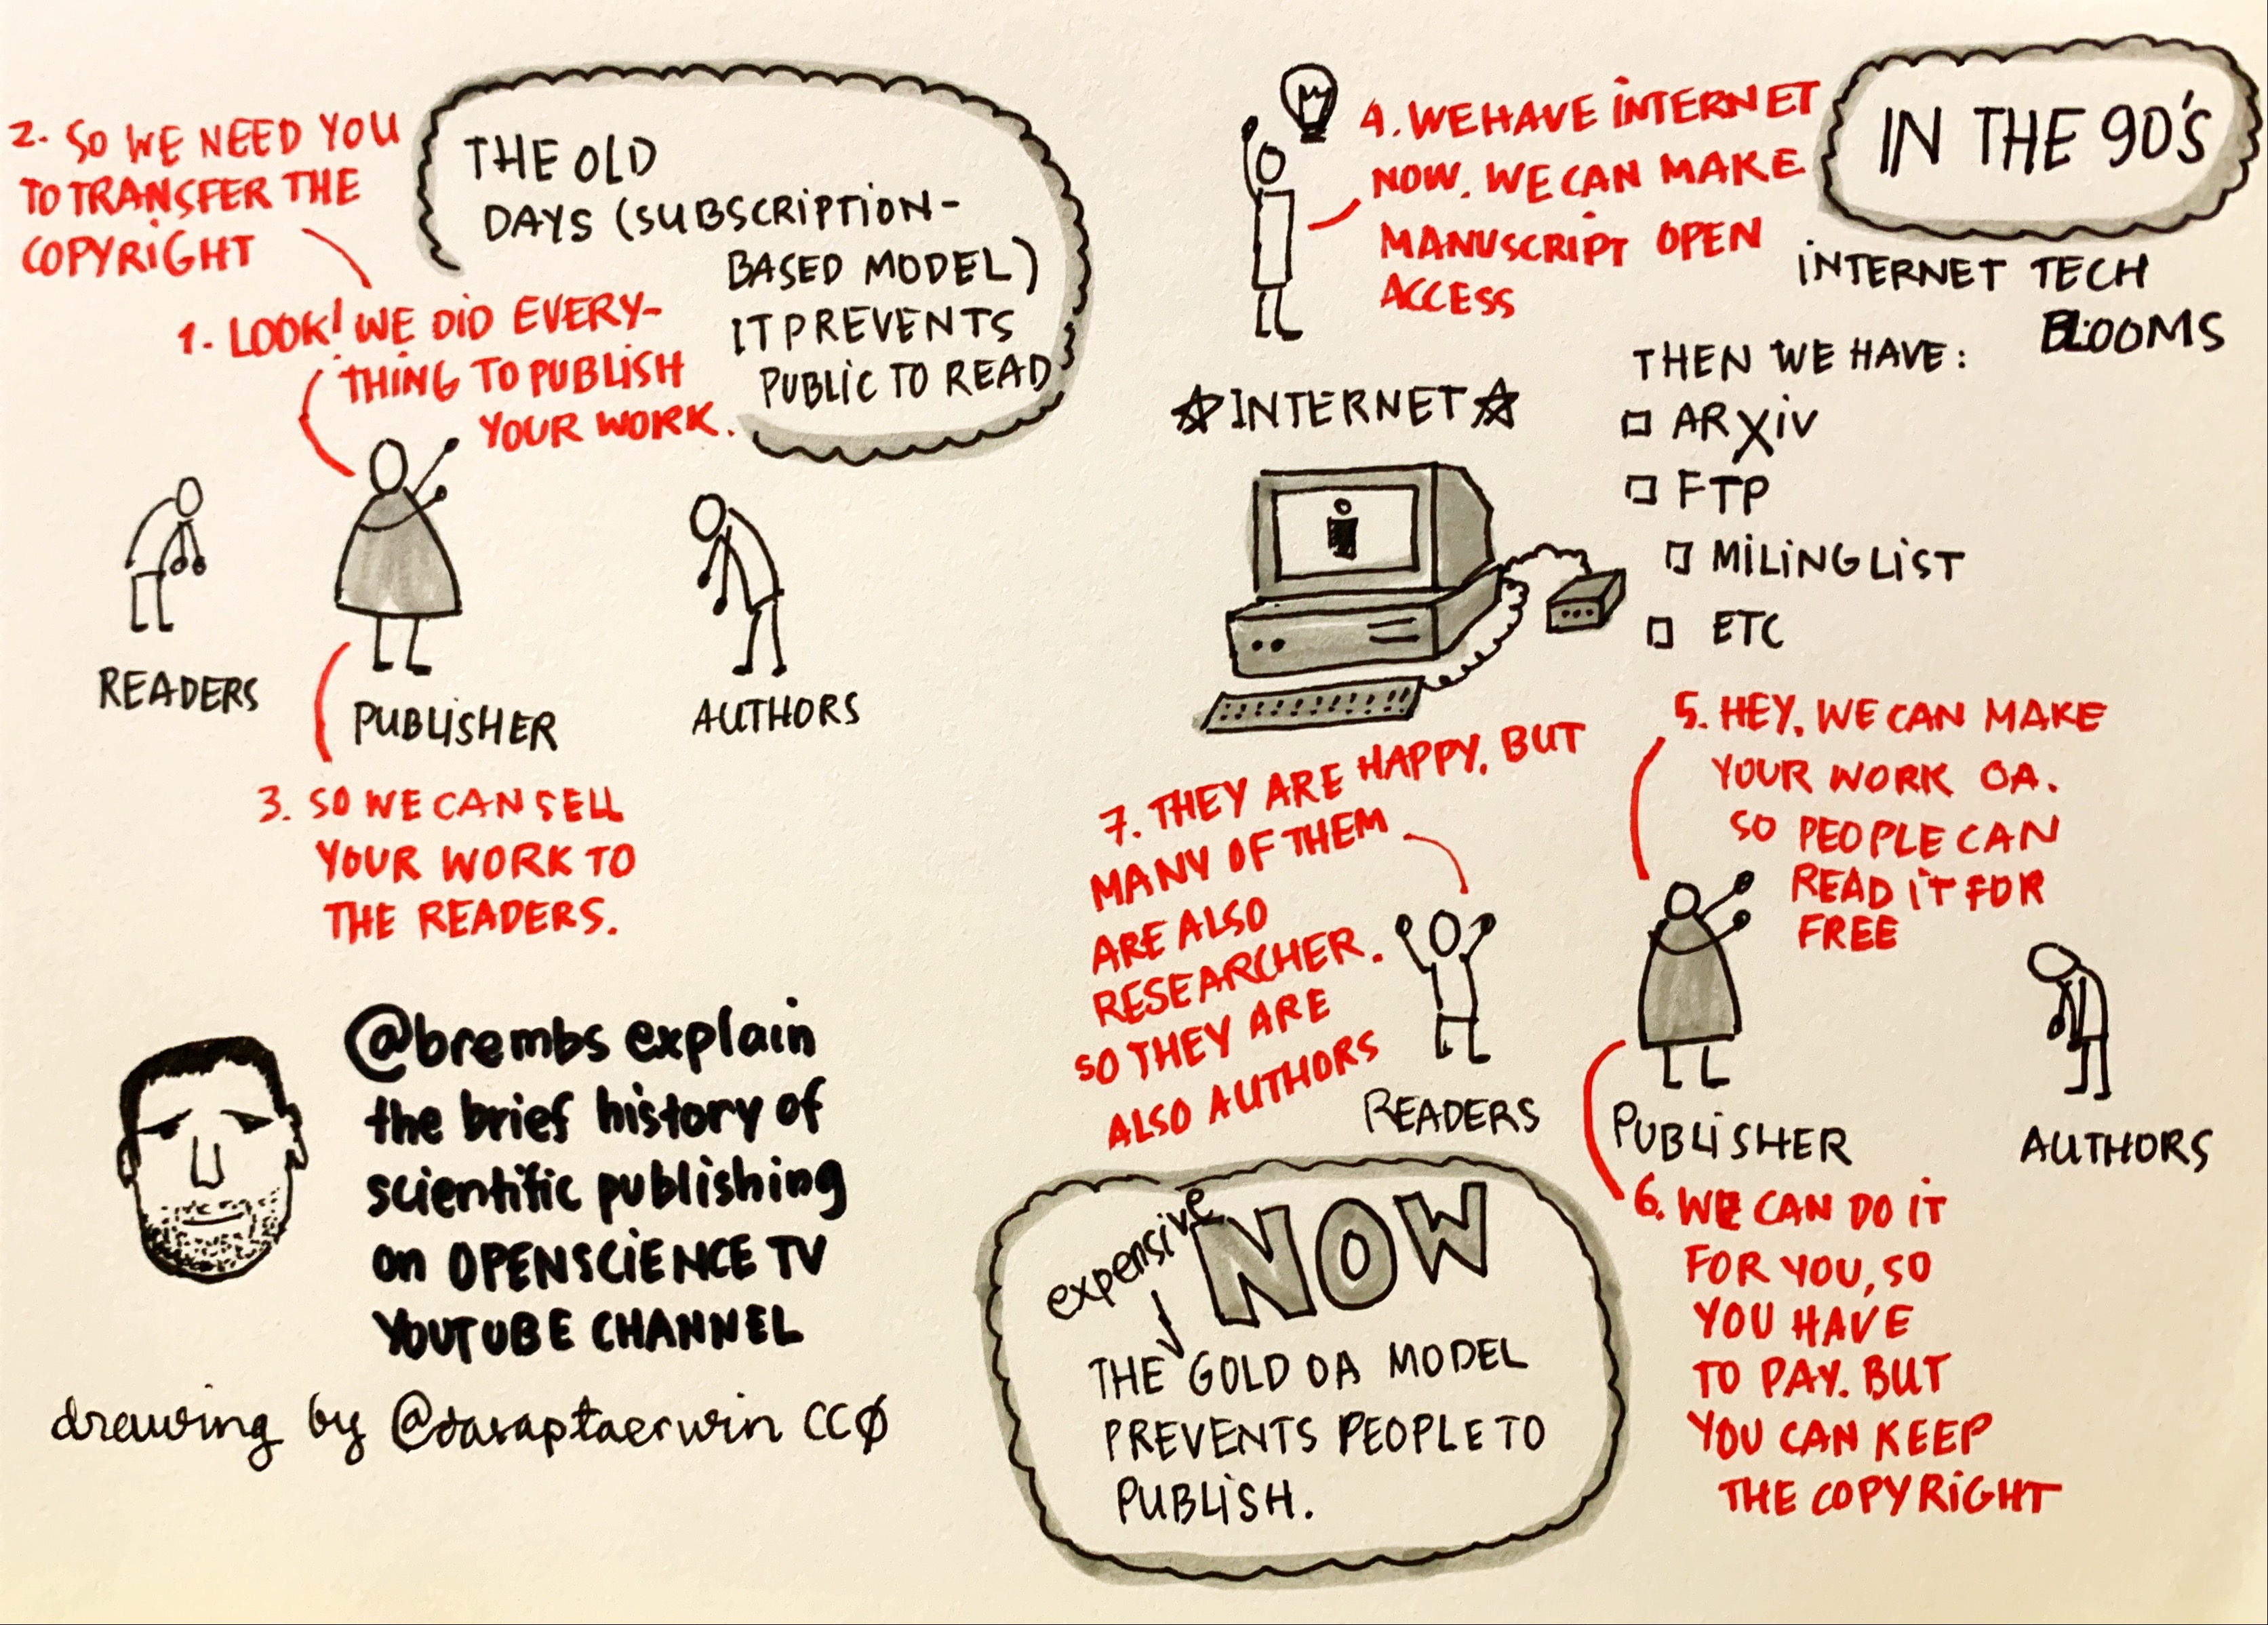 THE OLD
DAYS (SUBSCRIPTION-
BASED MODEL)
IT PREVENTS
PUBLIC TO READ
1. LOOK! WE DID EVERY-
THING TO PUBLISH
YOUR WORK.
2. SO WE NEED YOU
TO TRANSFER THE
COPYRIGHT
READERS
PUBLISHER
AUTHORS
3. SO WE CAN SELL
YOUR WORK TO
THE READERS.
@brembs explain
the brief history of
scientific publishing
on OPENSCIENCE TV
YOUTUBE CHANNEL
drawing by @dasaptaerwin CCØ
IN THE 90'S
INTERNET TECH
BLOOMS
4. WE HAVE INTERNET
NOW. WE CAN MAKE
MANUSCRIPT OPEN
ACCESS
☆INTERNET☆
THEN WE HAVE:
□ ARXIV
□ FTP
□ MILINGLIST
□ ETC
5. HEY, WE CAN MAKE
YOUR WORK OA.
SO PEOPLE CAN
READ IT FOR
FREE
7. THEY ARE HAPPY. BUT
MANY OF THEM
ARE ALSO
RESEARCHER.
SO THEY ARE
ALSO AUTHORS
READERS
PUBLISHER
AUTHORS
6. WE CAN DO IT
FOR YOU, SO
YOU HAVE
TO PAY. BUT
YOU CAN KEEP
THE COPYRIGHT
NOW
expensive
THE GOLD OA MODEL
PREVENTS PEOPLE TO
PUBLISH.